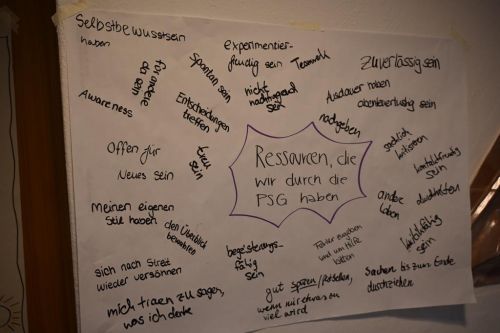 Selbstbewusstsein
haben
für andere
da sein
Awareness
Spontan sein
Entscheidungen
treffen
experimentier-
freudig sein
Teamwork
nicht
nachtragend
sein
zuverlässig sein
Ausdauer haben
abenteuerlustig sein
nachgeben
sachlich
kritisieren
kontaktfreudig
sein
Offen für
Neues sein
treu
sein
Ressourcen, die
wir durch die
PSG haben
andere
loben
durchhalten
Meinen eigenen
Stil haben
den Überblick
bewahren
konfliktfähig
sein
begeisterungs-
fähig
sein
Fehler zugeben
und um Hilfe
bitten
sich nach Streit
wieder versöhnen
mich trauen zu sagen,
was ich denke
gut spüren
wenn mir etwas zu
viel wird
Sachen bis zum Ende
durchziehen